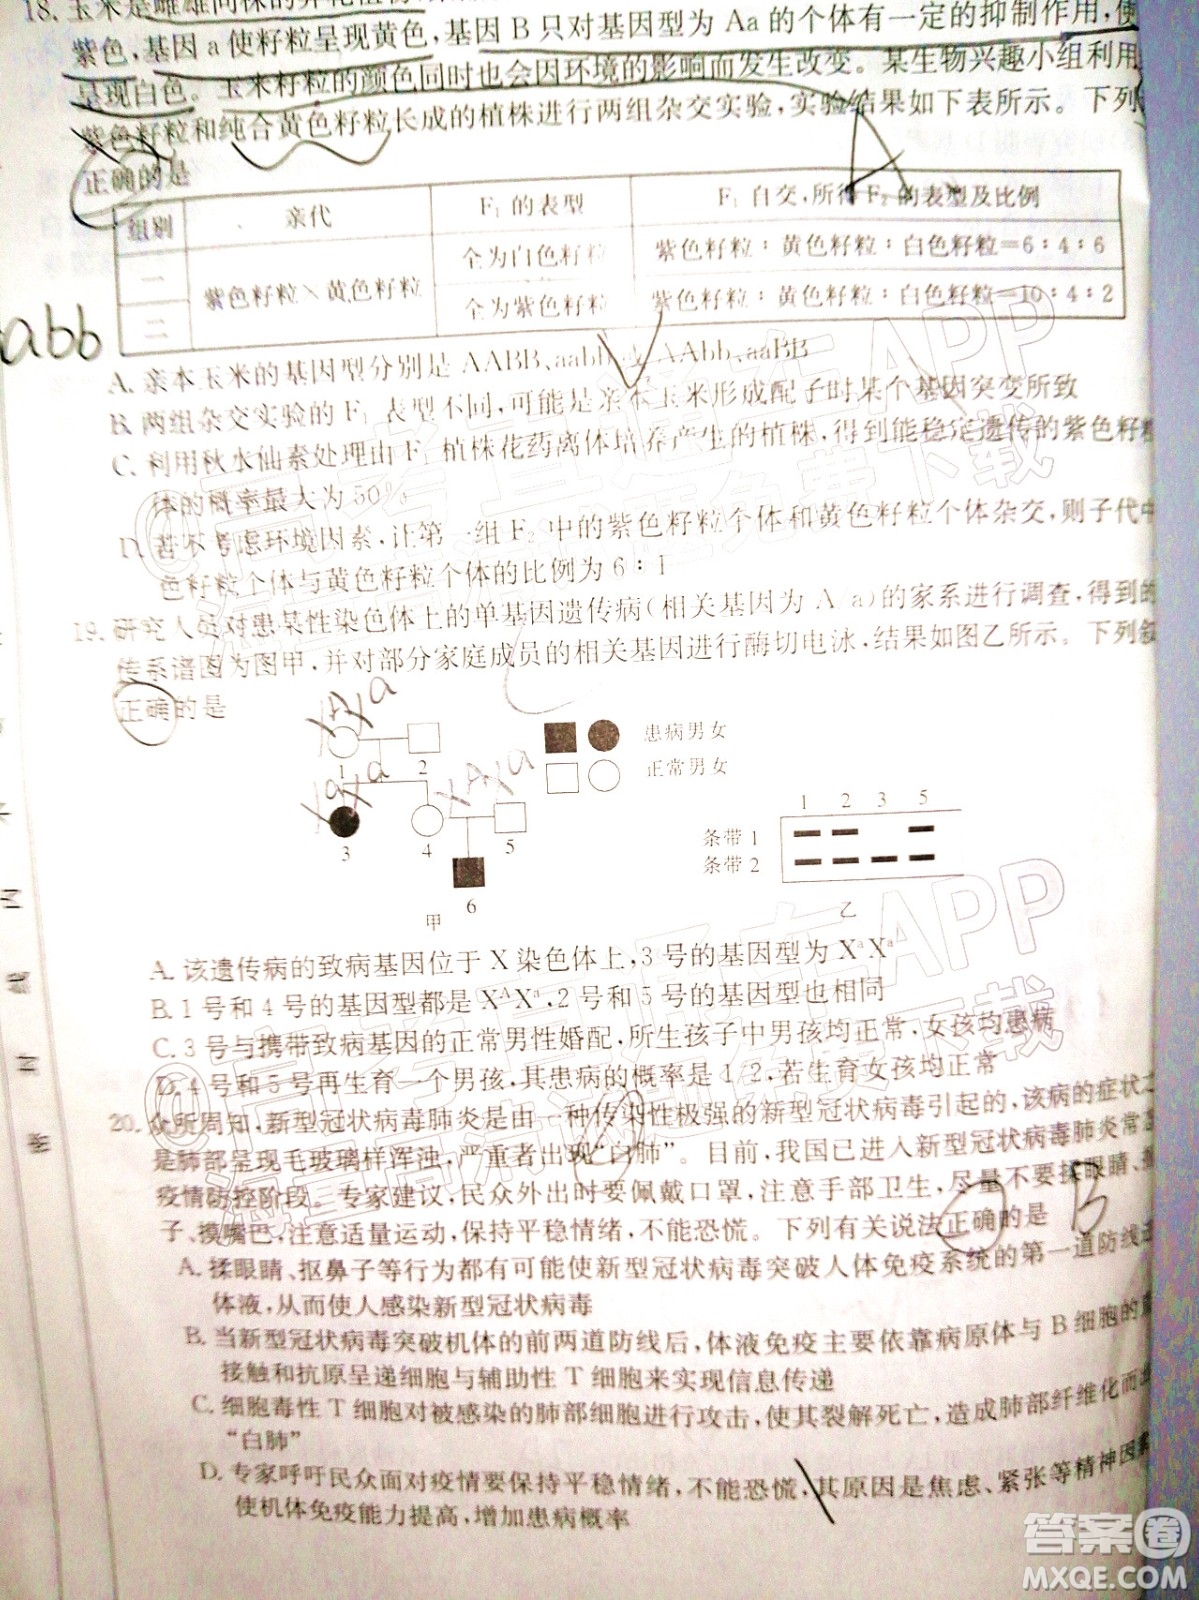 18. 玉米是雌雄同株的异花植物
紫色,基因 a 使籽粒呈现黄色,基因 B 只对基因型为 Aa 的个体有一定的抑制作用,使
呈现白色。玉米籽粒的颜色同时也会因环境的影响而发生改变。某生物兴趣小组利用
紫色籽粒和纯合黄色籽粒长成的植株进行两组杂交实验,实验结果如下表所示。下列
正确的是
组别 亲代 F₁ 的表型 F₁ 自交,所得 F₂ 的表型及比例
一 紫色籽粒×黄色籽粒 全为白色籽粒 紫色籽粒:黄色籽粒:白色籽粒=6:4:6
二 全为紫色籽粒 紫色籽粒:黄色籽粒:白色籽粒=10:4:2
abb
A. 亲本玉米的基因型分别是 AABB、aabb 或 AAbb、aaBB
B. 两组杂交实验的 F₁ 表型不同,可能是亲本玉米形成配子时某个基因突变所致
C. 利用秋水仙素处理由 F₁ 植株花药离体培养产生的植株,得到能稳定遗传的紫色籽粒
体的概率最大为 50%
D. 若不考虑环境因素,让第一组 F₂ 中的紫色籽粒个体和黄色籽粒个体杂交,则子代中
色籽粒个体与黄色籽粒个体的比例为 6:1
19. 研究人员对患某性染色体上的单基因遗传病(相关基因为 A/a)的家系进行调查,得到的
传系谱图为图甲,并对部分家庭成员的相关基因进行酶切电泳,结果如图乙所示。下列叙
正确的是
XAXa
XaXa
XAXa
1 2
3 4 5
6
甲
患病男女
正常男女
1 2 3 5
条带 1
条带 2
乙
A. 该遗传病的致病基因位于 X 染色体上,3 号的基因型为 XᵃXᵃ
B. 1 号和 4 号的基因型都是 XᴬXᵃ,2 号和 5 号的基因型也相同
C. 3 号与携带致病基因的正常男性婚配,所生孩子中男孩均正常,女孩均患病
D. 4 号和 5 号再生育一个男孩,其患病的概率是 1/2,若生育女孩均正常
20. 众所周知,新型冠状病毒肺炎是由一种传染性极强的新型冠状病毒引起的,该病的症状之
是肺部呈现毛玻璃样浑浊,严重者出现“白肺”。目前,我国已进入新型冠状病毒肺炎常态
疫情防控阶段。专家建议,民众外出时要佩戴口罩,注意手部卫生,尽量不要揉眼睛、
子、摸嘴巴,注意适量运动,保持平稳情绪,不能恐慌。下列有关说法正确的是
B
A. 揉眼睛、抠鼻子等行为都有可能使新型冠状病毒突破人体免疫系统的第一道防线进
体液,从而使人感染新型冠状病毒
B. 当新型冠状病毒突破机体的前两道防线后,体液免疫主要依靠病原体与 B 细胞的直
接触和抗原呈递细胞与辅助性 T 细胞来实现信息传递
C. 细胞毒性 T 细胞对被感染的肺部细胞进行攻击,使其裂解死亡,造成肺部纤维化而出
“白肺”
D. 专家呼吁民众面对疫情要保持平稳情绪,不能恐慌,其原因是焦虑、紧张等精神因素
使机体免疫能力提高,增加患病概率
@高考直通车APP
海量高清试题免费下载
@高考直通车APP
海量高清试题免费下载
答案圈
MXQE.COM